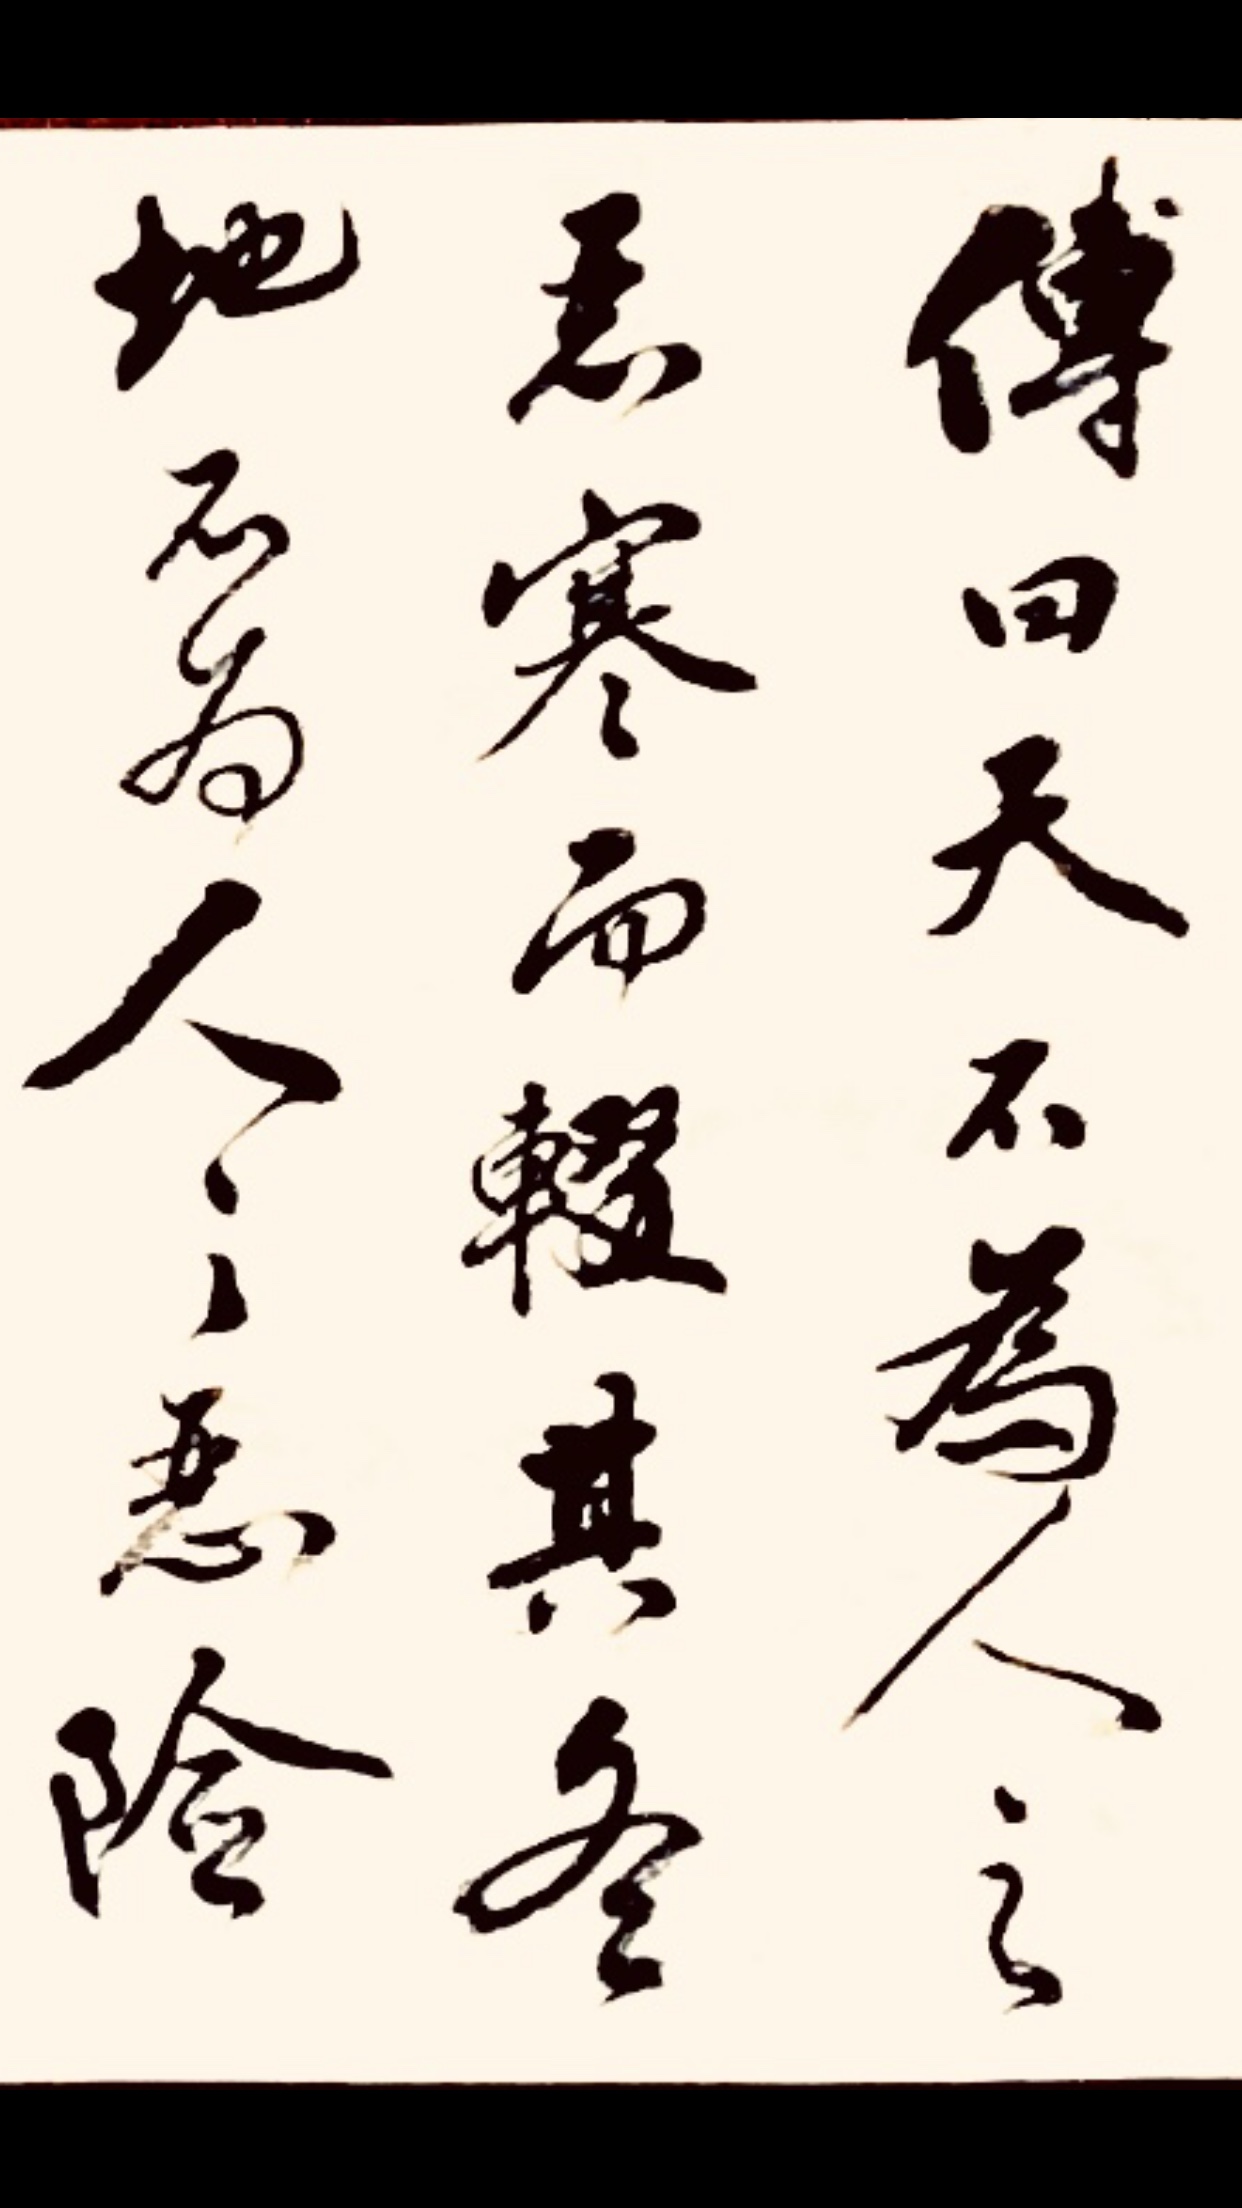 傳曰天不為人之
惡寒而輟其冬
地不為人之惡險